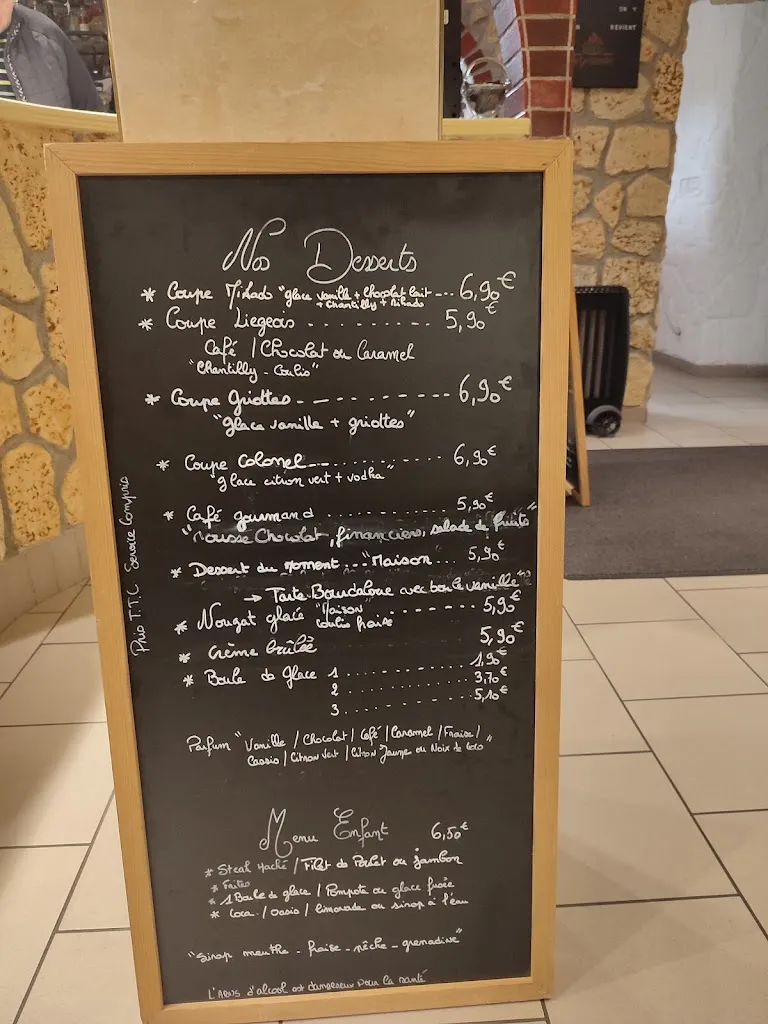 ON Y
REVIENT
Nos Desserts
* Coupe Mikado "glace vanille + chocolat lait --- 6,90€
+ chantilly + Mikado
* Coupe Liegeois . . . . . . . . . 5,90€
Café / Chocolat ou Caramel
"Chantilly - Coulis"
* Coupe Griottes - - - - - - - - - - 6,90€
"glace vanille + griottes"
* Coupe Colonel - - . . . . . . . . . 6,90€
glace citron vert + vodka"
* Café gourmand . . . . . . . . . . 5,90€
"Mousse Chocolat, financiers, salade de fruits"
* Dessert du moment . . . "Maison" . . 5,90€
→ Tarte Bourdaloue avec boule vanille"
* Nougat glacé "Maison" - - - - - - - 5,90€
coulis fraise
* Crème brûlée 5,90€
* Boule de glace 1 . - . - . - . - . 1,90€
2 . . . . . . . . . . 3,70€
3 . . . . . . . . . . 5,10€
Parfum "Vanille / Chocolat / Café / Caramel / Fraise /
Cassis / Citron Vert / Citron Jaune ou Noix de Coco"
Prix T.T.C Service Compris
Menu Enfant 6,50€
* Steak Haché / Filet de Poulet ou jambon
* Frites
* 1 Boule de glace / Compote ou glace fusée
* Coca / Oasis / limonade ou sirop à l'eau
"Sirop menthe - fraise - pêche - grenadine"
L'Abus d'alcool est dangereux pour la santé